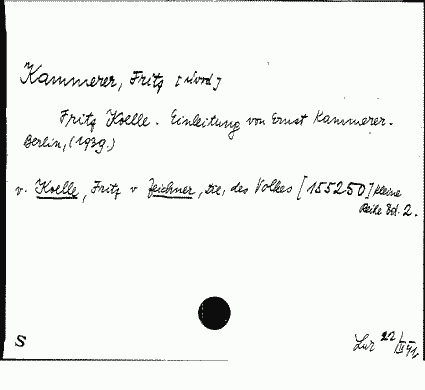 Kammerer, Fritz
Fritz Koelle. Einleitung von Ernst Kammerer.
Berlin, (1939.)
v. Koelle, Fritz v Zeichner, die, des Volkes [155250] Kleine
Reihe Bd. 2.
S
22/III 41